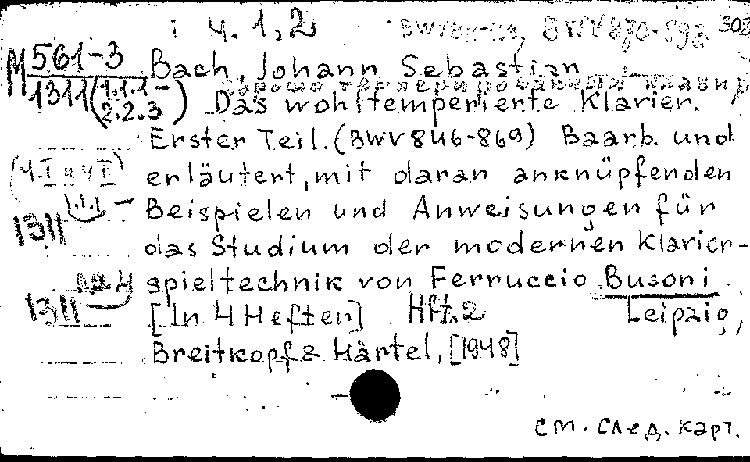 ч. 1,2
303
М 561-3 Bach, Johann Sebastian
1311 (1.1.1- 2.2.3) Das wohltemperierte Klavier.
Erster Teil. (BWV 846-869) Baarb. und
(ч. I и II) erläutert, mit daran anknüpfenden
1311 Beispielen und Anweisungen für
das Studium der modernen Klavier-
spieltechnik von Ferruccio Busoni
1311 [In 4 Heften] Hft. 2 Leipzig,
Breitkopf & Härtel, [1948]
см. след. карт.